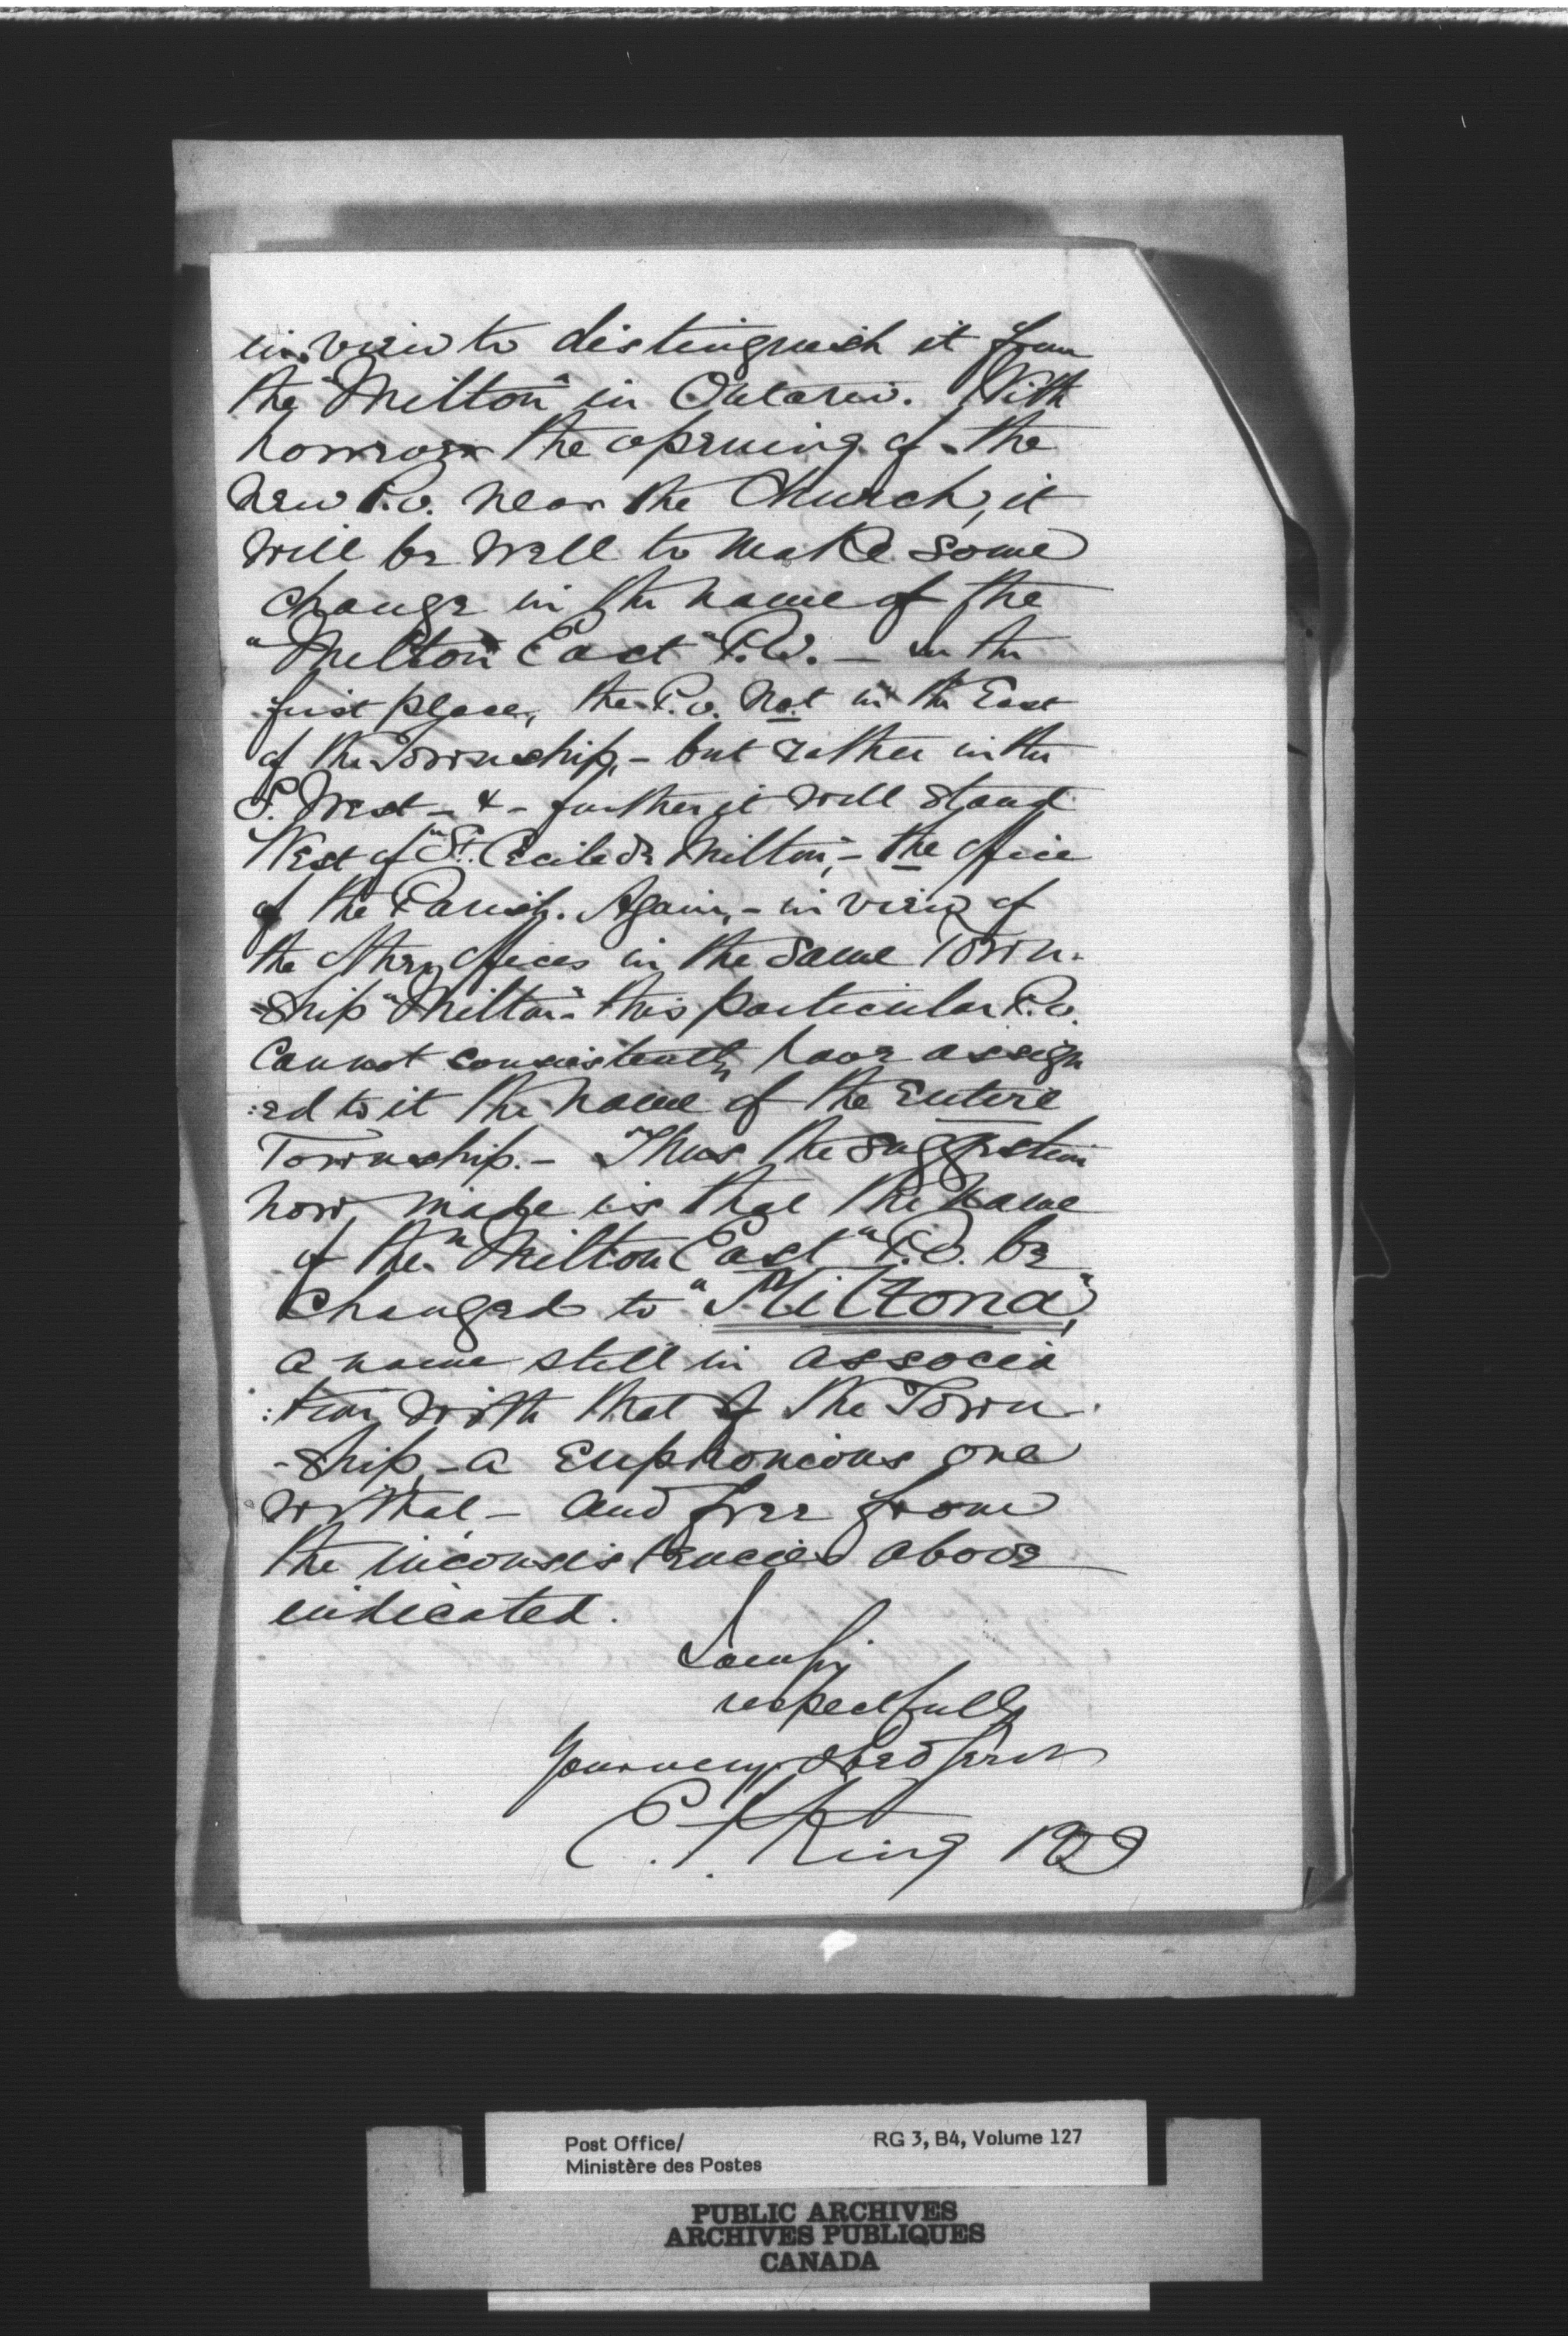 in view to distinguish it from
the "Milton" in Ontario. With
however the opening of the
new P.O. near the Church, it
will be well to make some
change in the name of the
"Milton East" P.O. – in the
first place, the P.O. not in the East
of the Township, – but rather in the
S. West – & – further it will stand
West of "St. Cecile de Milton", – the office
of the Parish. Again, – in view of
the other offices in the same Town-
-ship "Milton" this particular P.O.
cannot consistently have assign
:ed to it the name of the entire
Township. – Thus the suggestion
now made is that the name
of the "Milton East" P.O. be
changed to "Miltona",
a name still in associa
:tion with that of the Town-
-ship, – a euphonious one
withal – and free from
the inconsistencies above
indicated.
I am Sir
respectfully
Your very obed Servt
E. F. King
Post Office/
Ministère des Postes
RG 3, B4, Volume 127
PUBLIC ARCHIVES
ARCHIVES PUBLIQUES
CANADA